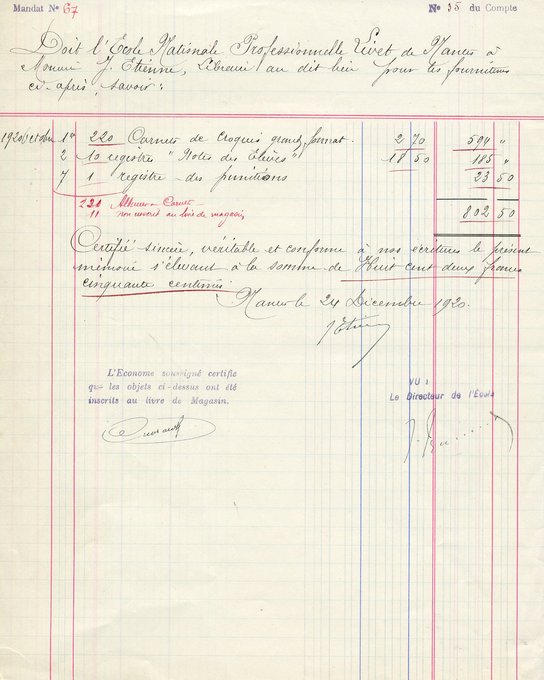 Mandat No 67
No 35 du Compte
Doit l'Ecole Nationale Professionnelle Livet de Nantes à
Monsieur J. Etienne, Libraire au dit lieu pour les fournitures
ci-après, savoir:
1920 Octobre 1er 220 Carnets de croquis grand format. 2 70 594 "
2 10 registres "Notes des Elèves" 18 50 185 "
7 1 registre des punitions 23 50
221
11 non au livre de magasin
802 50
Certifié sincère, véritable et conforme à nos écritures le présent
mémoire s'élevant à la somme de Huit cent deux francs
cinquante centimes
Nantes le 24 Décembre 1920.
L'Econome soussigné certifie
que les objets ci-dessus ont été
inscrits au livre de Magasin.
VU:
Le Directeur de l'École